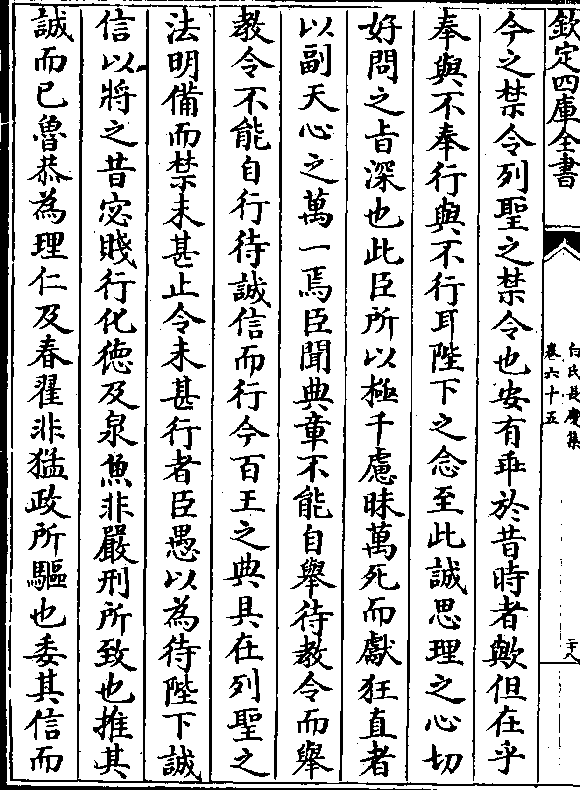 欽定四庫全書
白氏長慶集
卷六十五
二十八
今之禁令列聖之禁令也安有乖於昔時者歟但在乎
奉與不奉行與不行耳陛下之念至此誠思理之心切
好問之㫖深也此臣所以極千慮昧萬死而獻狂直者
以副天心之萬一焉臣聞典章不能自舉待教令而舉
教令不能自行待誠信而行今百王之典具在列聖之
法明備而禁未甚止令未甚行者臣愚以為待陛下誠
信以將之昔宓賤行化徳及泉魚非嚴刑所致也推其
誠而已魯恭為理仁及春翟非猛政所驅也委其信而